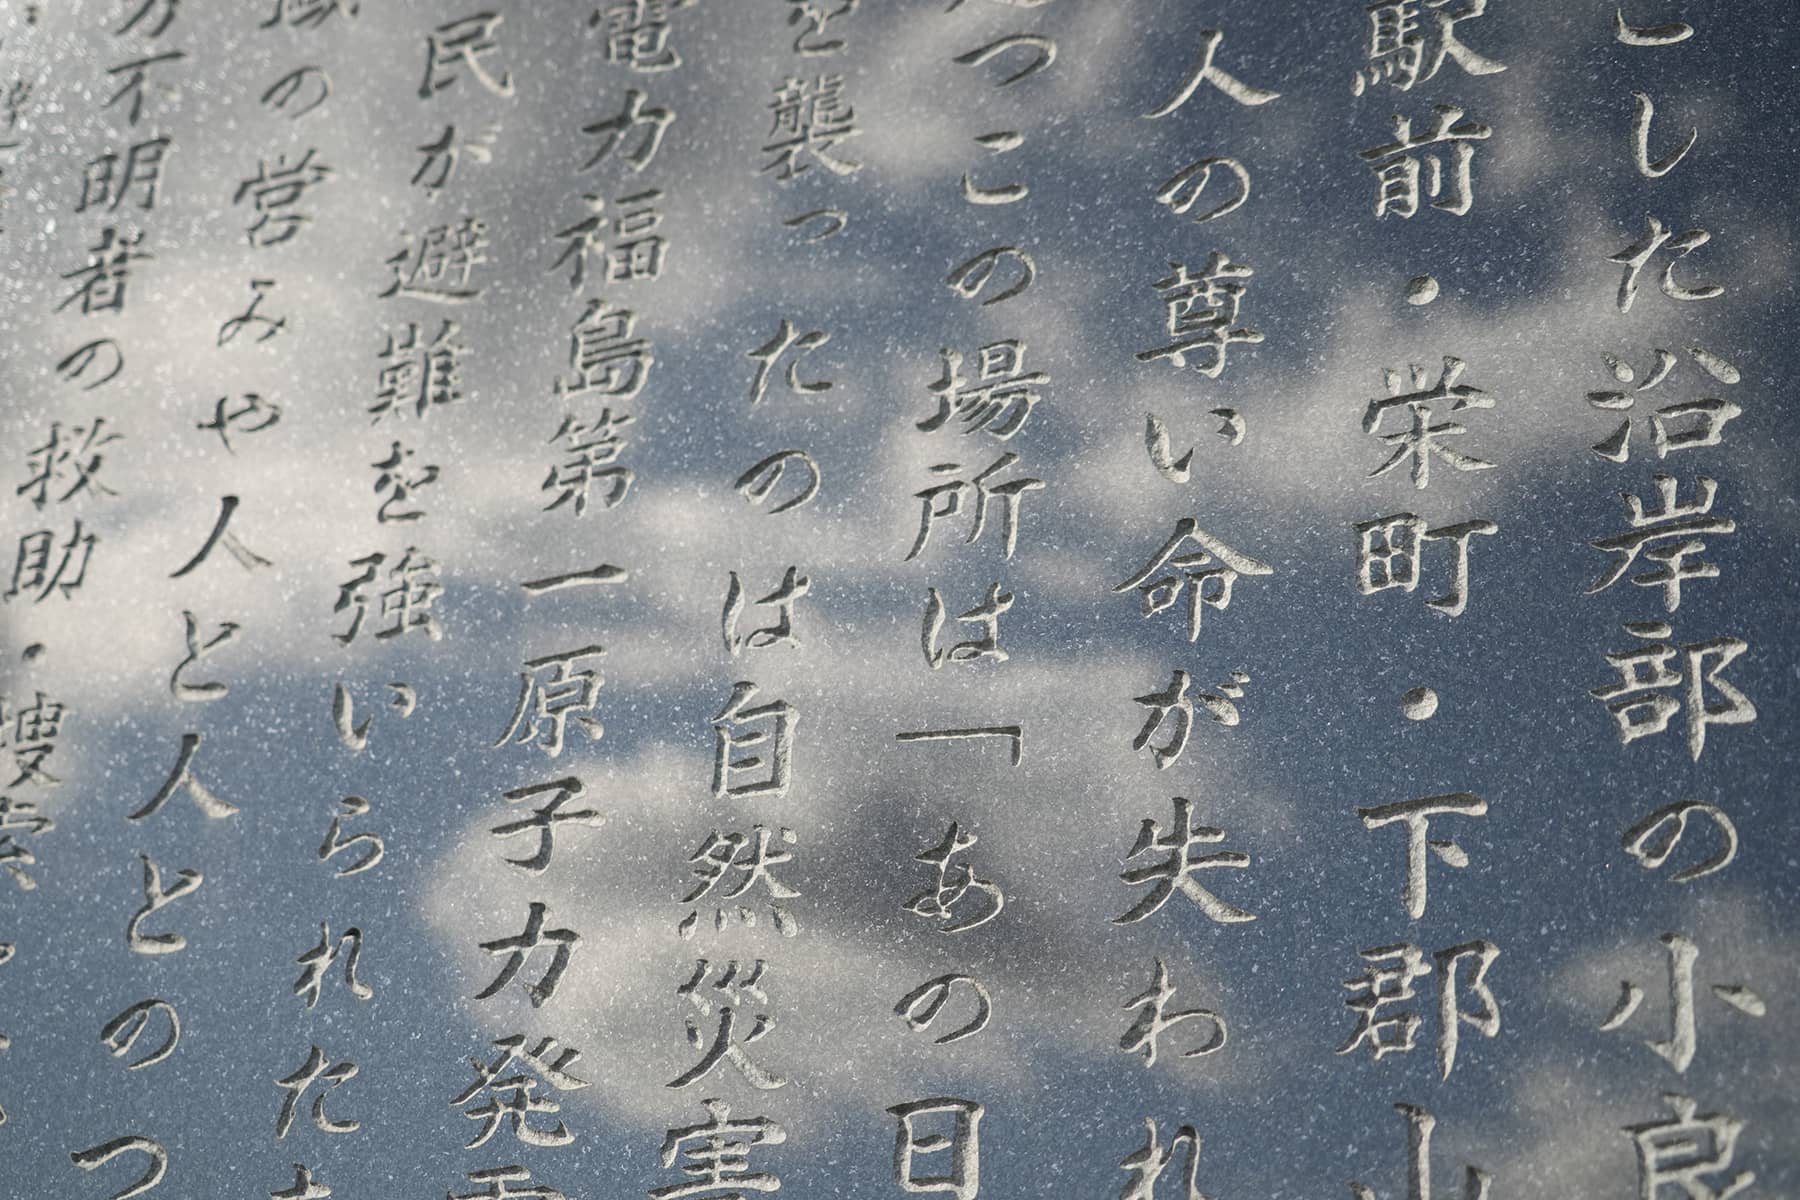 こした沿岸部の小良
駅前・栄町・下郡山
人の尊い命が失われ
つこの場所は「あの日
を襲ったのは自然災害
電力福島第一原子力発電
民が避難を強いられた
の営みや人と人とのつ
方不明者の救助・捜索